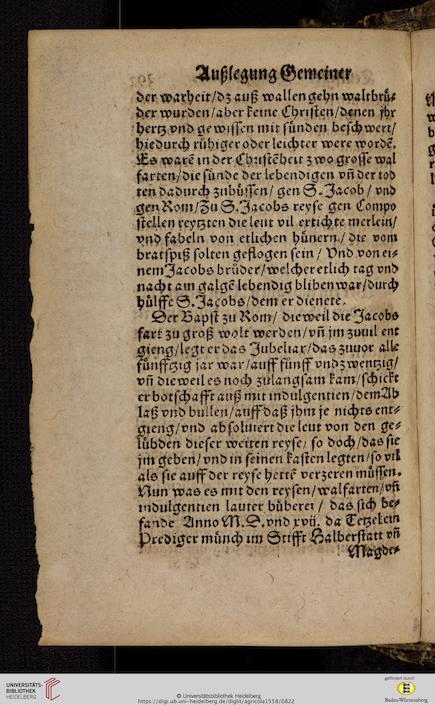 Außlegung Gemeiner
der warheit/dz auß wallen gehn waltbrü⸗
der wurden/aber keine Christen/denen jhr
hertz vnd gewissen mit sünden beschwert/
hiedurch rühiger oder leichter were wordẽ.
Es warẽ in der Christẽheit zwo grosse wal
farten/die sünde der lebendigen vñ der tod
ten dadurch zubüssen/ gen S. Jacob/ vnd
gen Rom/Zu S. Jacobs reyse gen Compo
stellen reytzten die leut vil ertichte merlein/
vnd fabeln von etlichen hünern/ die vom
bratspiß solten geflogen sein/ Vnd von ei⸗
nem Jacobs brüder/welcher etlich tag vnd
nacht am galgẽ lebendig bliben war/durch
hülffe S. Jacobs/dem er dienete.
Der Bapst zu Rom/ dieweil die Jacobs
fart zu groß wolt werden/vñ jm zuuil ent
gieng/legt er das Jubeliar/das zuuor alle
fünfftzig jar war/auff fünff vnd zwentzig/
vñ dieweil es noch zulangsam kam/schickt
er botschafft auß mit indulgentien/dem Ab
laß vnd bullen/auff daß jhm je nichts ent⸗
gieng/vnd absoluiert die leut von den ge⸗
lübden dieser weiten reyse/ so doch/das sie
jm geben/vnd in seinen kasten legten/so vil
als sie auff der reyse hettẽ verzeren müssen.
Nun was es mit den reysen/walfarten/vñ
indulgentien lauter büberei/ das sich be⸗
fande Anno M.D.vnd xvij. da Tetzel ein
Prediger münch im Stifft Halberstatt vñ
Magde⸗
UNIVERSITÄTS-
BIBLIOTHEK
HEIDELBERG
© Universitätsbibliothek Heidelberg
https://digi.ub.uni-heidelberg.de/diglit/agricola1558/0822
gefördert durch
Baden-Württemberg